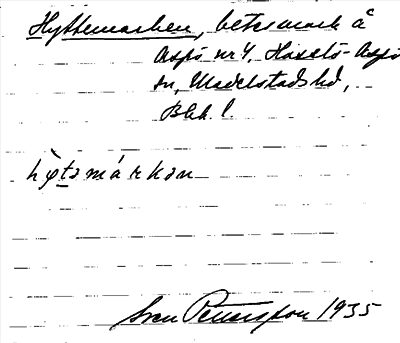 Hyttemarken, betesmark å
Aspö nr 4, Hasslö-Aspö
sn, Medelstads hd,
Blek. l.
hy̆tamárkan
Sven Pettersson 1935